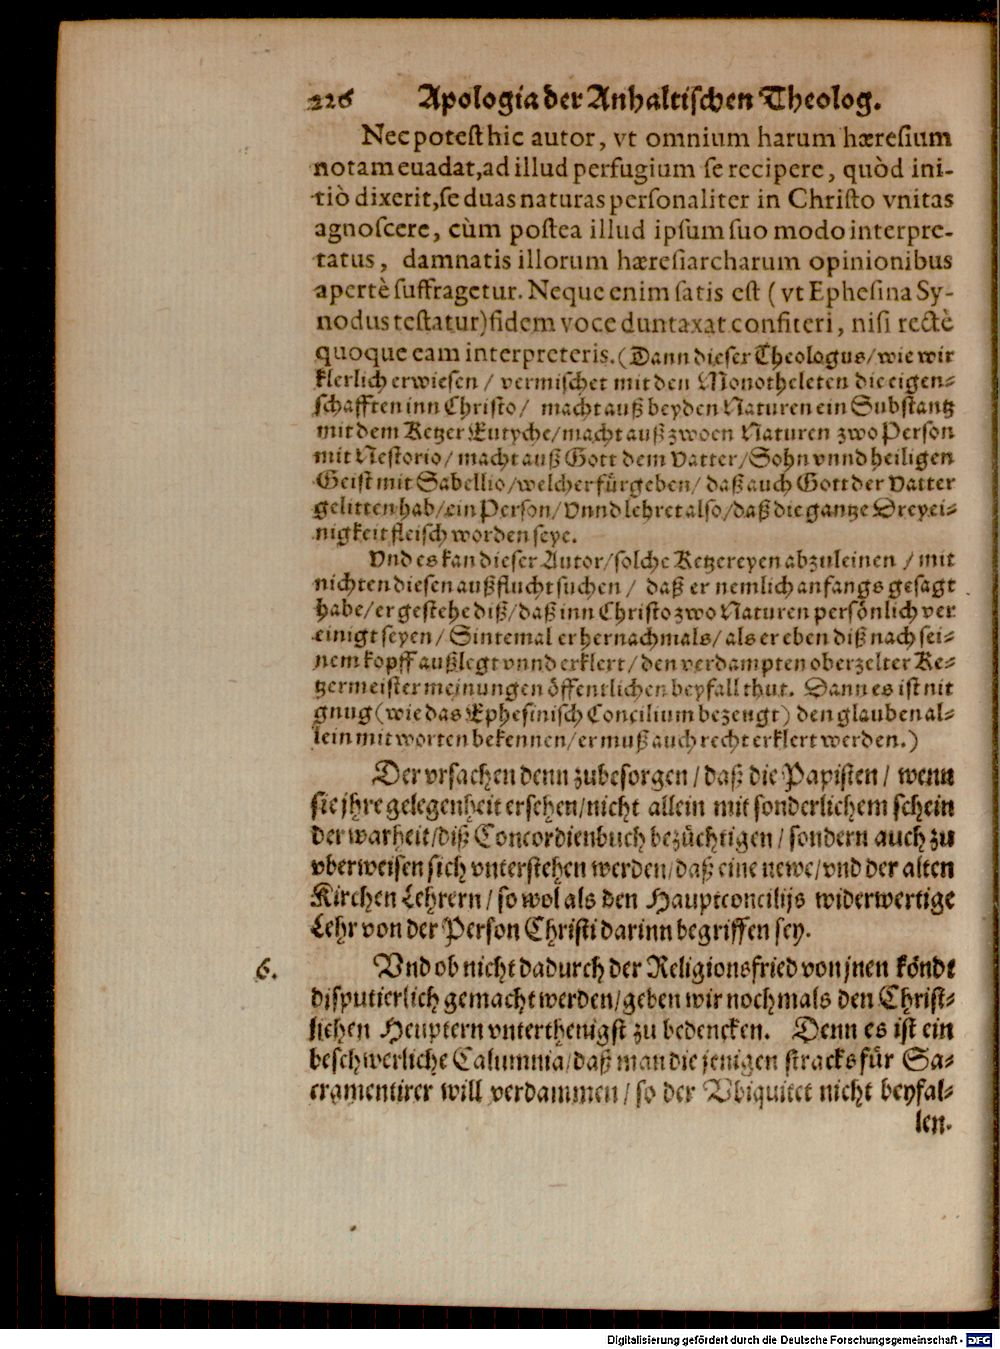 226 Apologia der Anhaltischen Theolog.
Nec potest hic autor, vt omnium harum hæresium
notam euadat, ad illud perfugium se recipere, quòd ini-
tiò dixerit, se duas naturas personaliter in Christo vnitas
agnoscere, cùm postea illud ipsum suo modo interpre-
tatus, damnatis illorum hæresiarcharum opinionibus
apertè suffragetur. Neque enim satis est (vt Ephesina Sy-
nodus testatur) fidem voce duntaxat confiteri, nisi rectè
quoque eam interpreteris. (Dann dieser Theologus/ wie wir
klerlich erwiesen/ vermischet mit den Monotheleten die eigen-
schafften inn Christo/ macht auß beyden Naturen ein Substantz
mit dem Ketzer Eutyche/ macht auß zwoen Naturen zwo Person
mit Nestorio/ macht auß Gott dem Vatter/ Sohn vnnd heiligen
Geist mit Sabellio/ welcher fürgeben/ daß auch Gott der Vatter
gelitten hab/ ein Person/ Vnnd lehret also/ daß die gantze Dreyei-
nigkeit fleisch worden seye.
Vnd es kan dieser Autor/ solche Ketzereyen abzuleinen/ mit
nichten diesen außflucht suchen/ daß er nemlich anfangs gesagt
habe/ er gestehe diß/ daß inn Christo zwo Naturen persönlich ver
einigt seyen/ Sintemal er hernachmals/ als er eben diß nach sei-
nem kopff außlegt vnnd erklert/ den verdampten oberzelter Ke-
tzermeister meinungen öffentlichen beyfall thut. Dann es ist nit
gnug (wie das Ephesinisch Concilium bezeugt) den glauben al-
lein mit worten bekennen/ er muß auch recht erklert werden.)
Der vrsachen denn zubesorgen/ daß die Papisten/ wenn
sie jhre gelegenheit ersehen/ nicht allein mit sonderlichem schein
der warheit/ diß Concordienbuch bezüchtigen/ sondern auch zu
vberweisen sich vnterstehen werden/ daß eine newe/ vnd der alten
Kirchen Lehrern/ so wol als den Hauptconcilijs widerwertige
Lehr von der Person Christi darinn begriffen sey.
6. Vnd ob nicht dadurch der Religionsfried von jnen köndt
disputierlich gemacht werden/ geben wir nochmals den Christ-
lichen Heuptern vnterthenigst zu bedencken. Denn es ist ein
beschwerliche Calumnia/ daß man die jenigen stracks für Sa-
cramentirer will verdammen/ so der Vbiquitet nicht beyfal-
len.
Digitalisierung gefördert durch die Deutsche Forschungsgemeinschaft - DFG